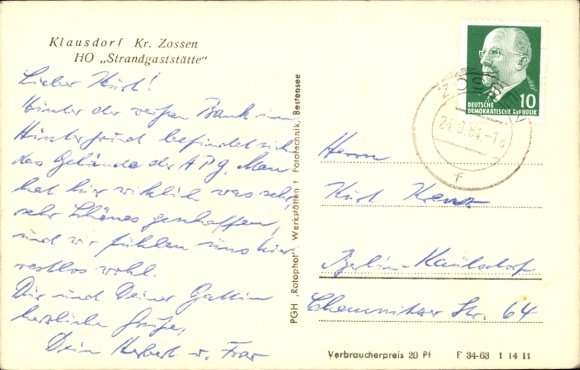 Klausdorf Kr. Zossen
HO „Strandgaststätte"
Lieber Kurt!
Hinter der weißen Bank im
Hintergrund befindet sich
das Gelände der APG. Man
hat hier wirklich was sehr,
sehr Schönes geschaffen,
und wir fühlen uns hier
restlos wohl.
Dir und Deiner Gattin
herzliche Grüße,
Dein Herbert u. Frau
PGH „Rotophot", Werkstätten f. Fototechnik, Bestensee
DEUTSCHE
DEMOKRATISCHE REPUBLIK
10
ZOSSEN
Herrn
Kurt
Berlin-Kaulsdorf
Chemnitzer Str. 64
Verbraucherpreis 20 Pf F 34-63 1 14 11